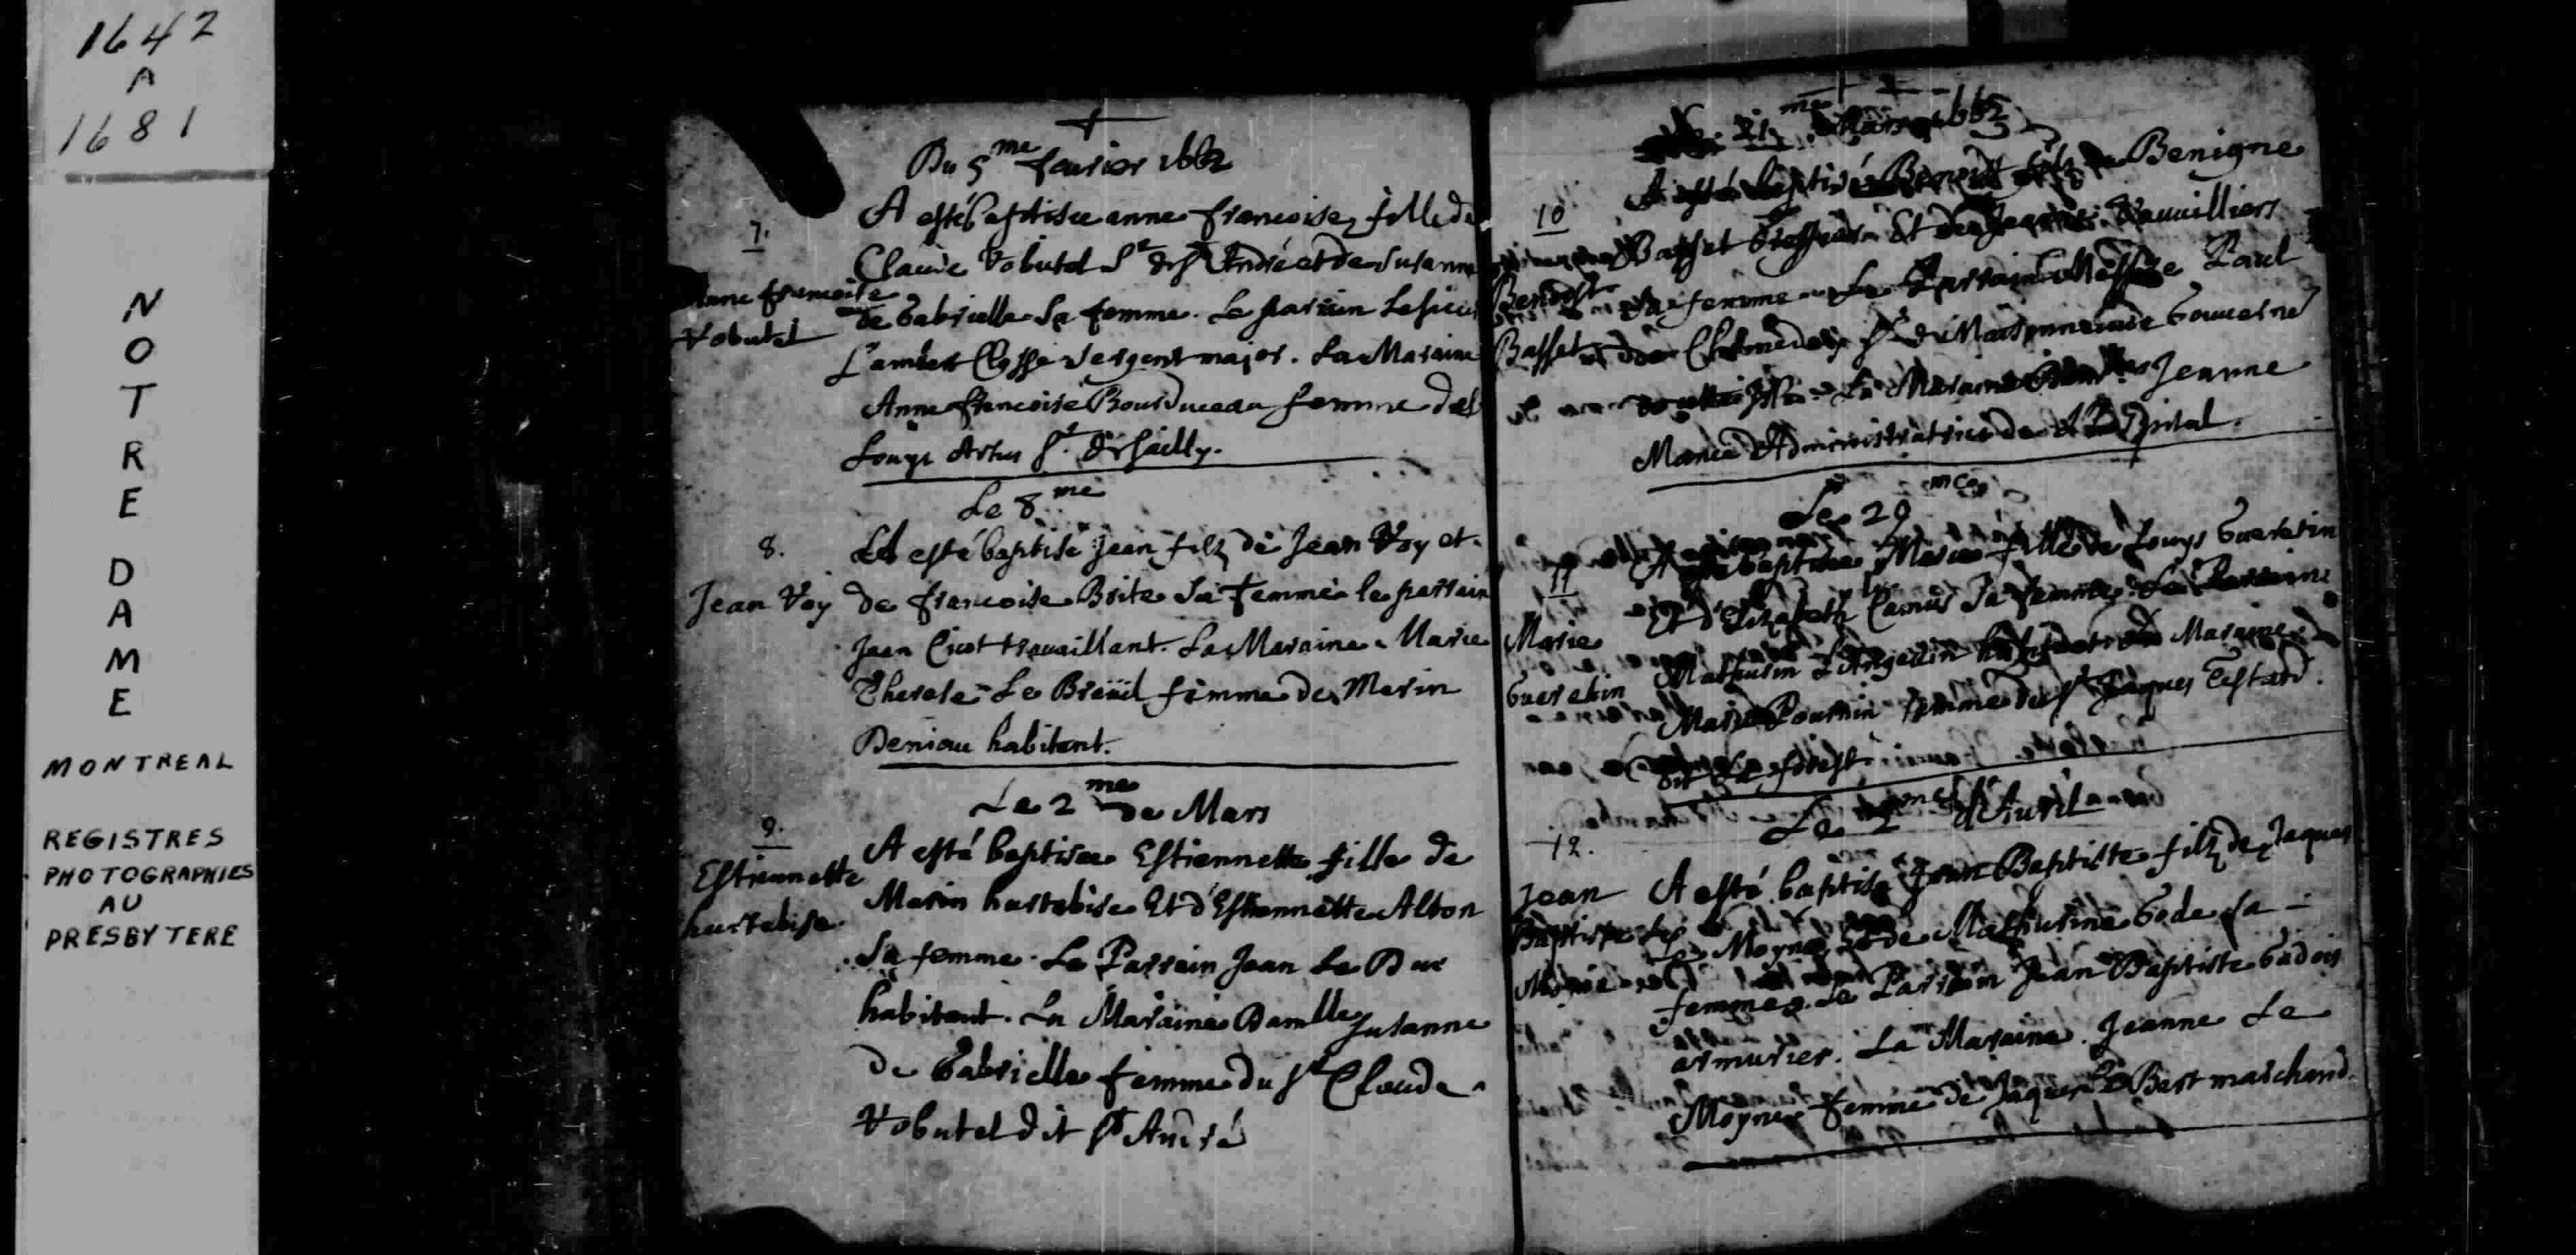 1642
A
1681
NOTRE
DAME
MONTREAL
REGISTRES
PHOTOGRAPHIES
AU
PRESBYTERE
Du 5me feurier 1662
7.
A esté baptisee anne francoise fille de
Claude Vobutel Sr de St André et de Susanne
Anne francoise
Vobutel
de Gabrielle Sa femme. Le parrain Le sieur
Lambert Closse Sergent major. La Maraine
Anne francoise Bourduceau femme de
Louys Artus Sr. de Sailly.
Le 8me
8.
A esté baptisé Jean filz de Jean Voy et
Jean Voy
de francoise Brite Sa femme le parrain
Jean Cicot travaillant. La Maraine Marie
Therese Le Breüil femme de Marin
Deniau habitant.
Le 2me de Mars
9.
Estiennette
hurtebise.
A esté baptisee Estiennette fille de
Marin hurtebise Et d'Estiennette Alton
Sa femme. Le Parrain Jean Le Duc
habitant. La Maraine Damlle Susanne
de Gabrielle femme du Sr Claude
Vobutel dit St André
21me Mars 1662
10
A esté baptisé Benoist filz de Benigne
Basset Et de Jeanne Vauuilliers
Benoist
Basset
Sa femme Le Parrain Messire Paul
de Chomedey Sr de Maisonneuve Gouuerner
La Maraine Jeanne
Mance Administratrice de l'Hospital.
Le 29me
11
Marie
Gueretin
A esté baptisee Marie fille de Louys Gueretin
Et d'Elizabeth Camus Sa femme. Le Parrain
Mathurin L'Angeuin habitant La Maraine
Marie Pournin femme du Sr Jaques Testard.
dit La forest.
Le 2me d'Auril
12.
Jean
Baptiste Le
Moine
A esté baptisé Jean Baptiste filz de Jaques
Le Moyne Et de Mathurine Gode sa
femme. Le Parrain Jean Baptiste Gadois
armurier. La Maraine Jeanne Le
Moyne femme de Jaques Le Ber marchand.